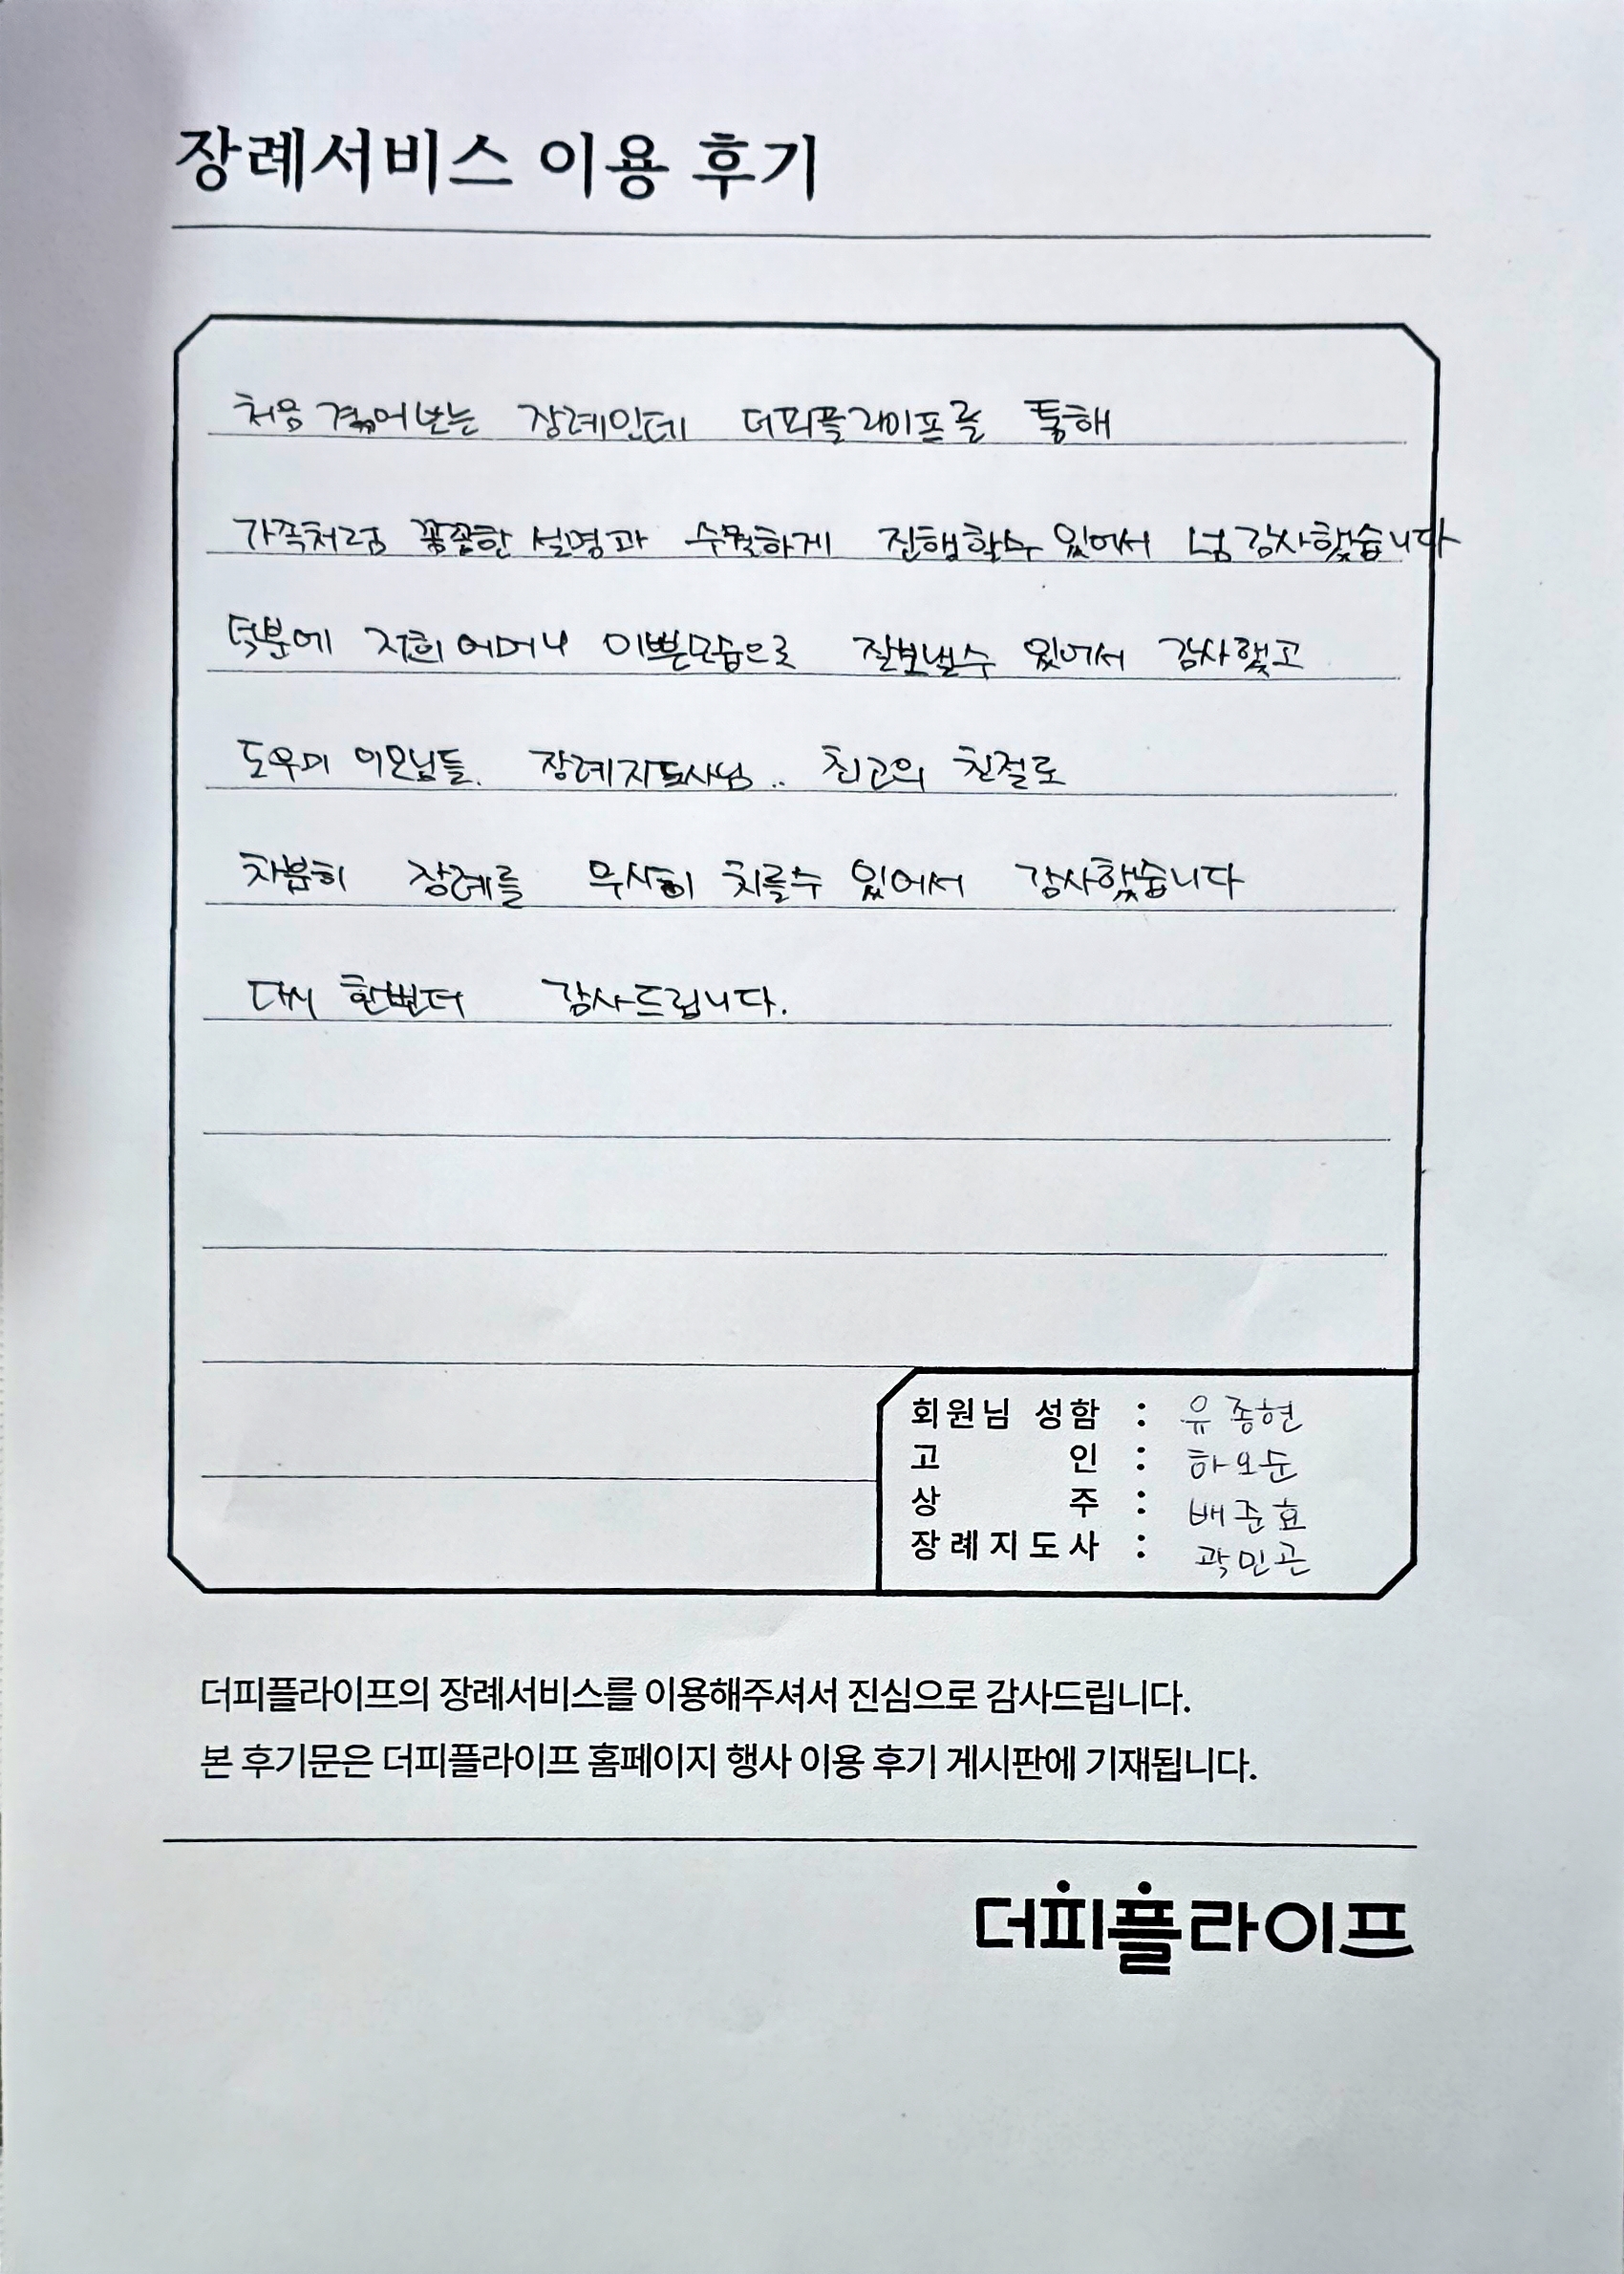 장례서비스 이용 후기
처음 겪어보는 장례인데 더피플라이프를 통해
가족처럼 꼼꼼한 설명과 수월하게 진행할수 있어서 넘 감사했습니다
덕분에 저희 어머니 이쁜모습으로 잘보낼수 있어서 감사했고
도우미 이모님들. 장례지도사님.. 최고의 친절로
차분히 장례를 무사히 치를수 있어서 감사했습니다
다시 한번더 감사드립니다.
회원님 성함 : 유종현
고 인 : 하오둔
상 주 : 배준효
장례지도사 : 곽민곤
더피플라이프의 장례서비스를 이용해주셔서 진심으로 감사드립니다.
본 후기문은 더피플라이프 홈페이지 행사 이용 후기 게시판에 기재됩니다.
더피플라이프